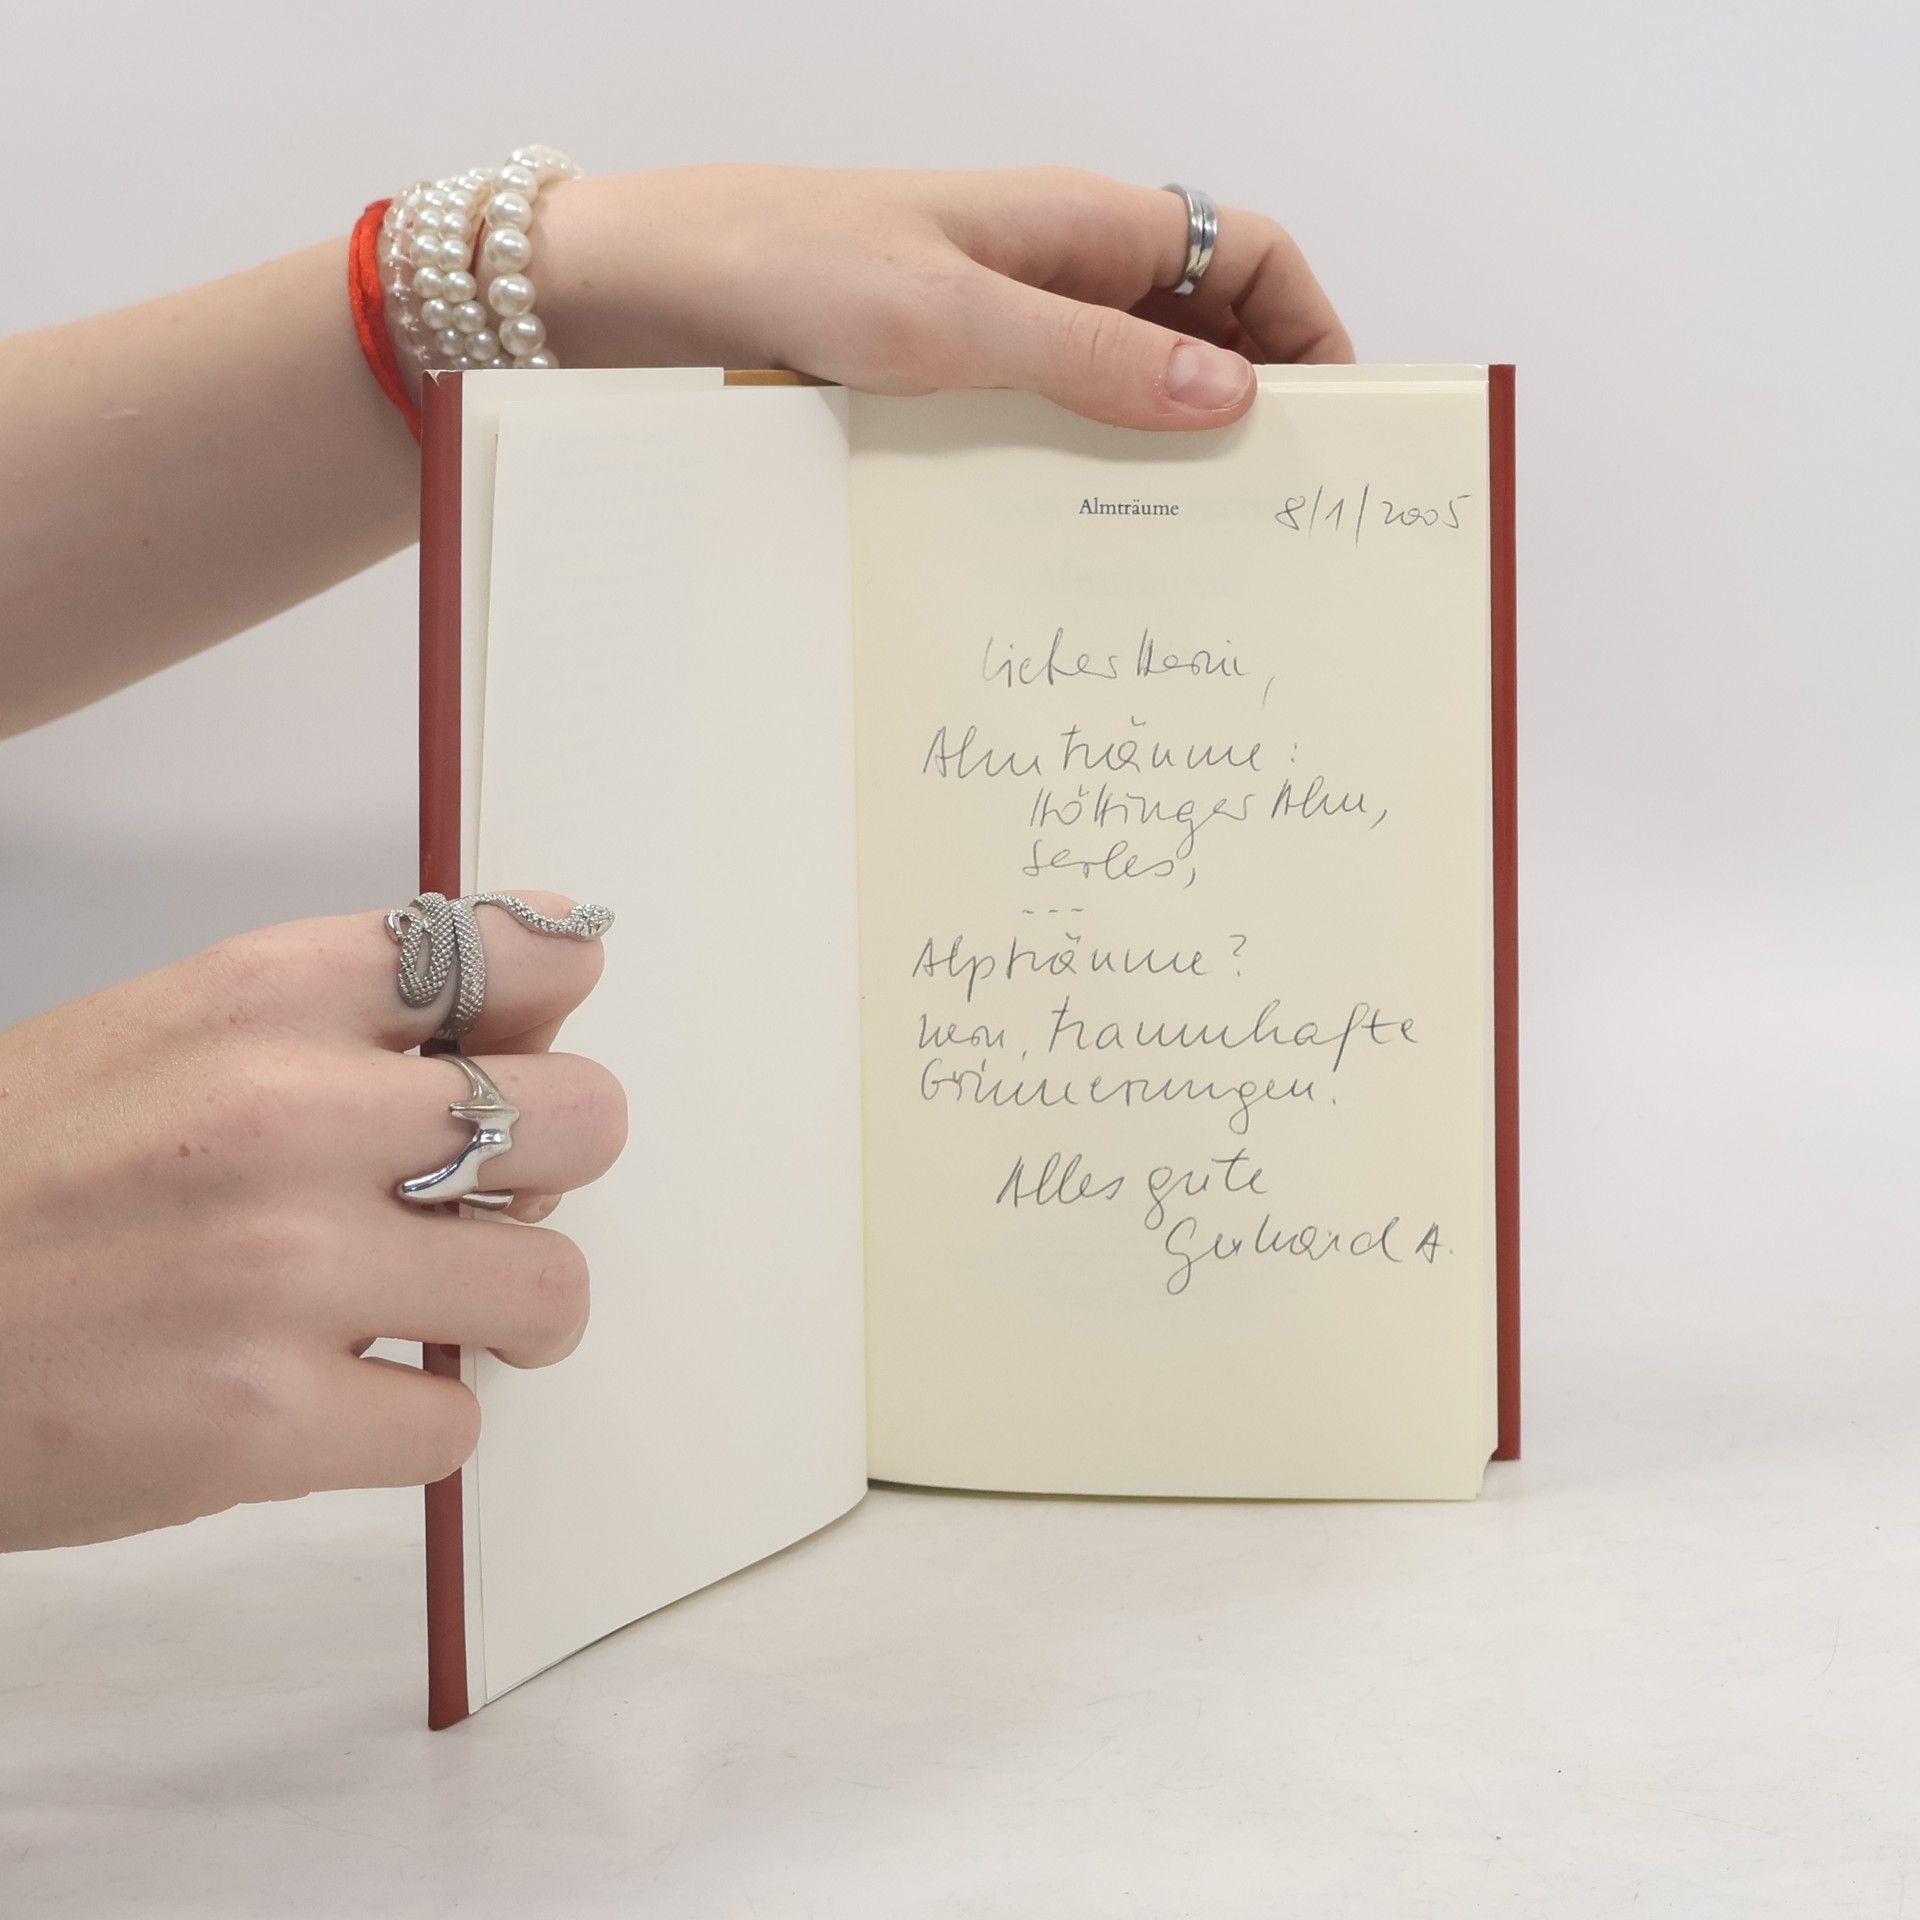 Almträume
8/1/2005
Lieber Heini,
Almträume:
Höttinger Alm,
Serles,
---
Alpträume?
Nein, traumhafte
Erinnerungen!
Alles gute
Gerhard A.